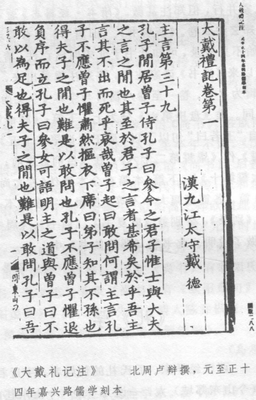 大戴禮記卷第一
漢九江太守戴 德
主言第三十九
孔子閒居曾子侍孔子曰參今之君子惟士與大夫
之言之閒也其至於君子之言者甚希矣於乎吾主
言其不出而死乎哀哉曾子起曰敢問何謂主言孔
子不應曾子懼肅然摳衣下席曰弟子知其不孫也
得夫子之閒也難是以敢問也孔子不應曾子懼退
負序而立孔子曰參女可語明主之道與曾子曰不
敢以為足也得夫子之閒也難是以敢問孔子曰吾
《大戴礼记注》 北周卢辩撰，元至正十
四年嘉兴路儒学刻本